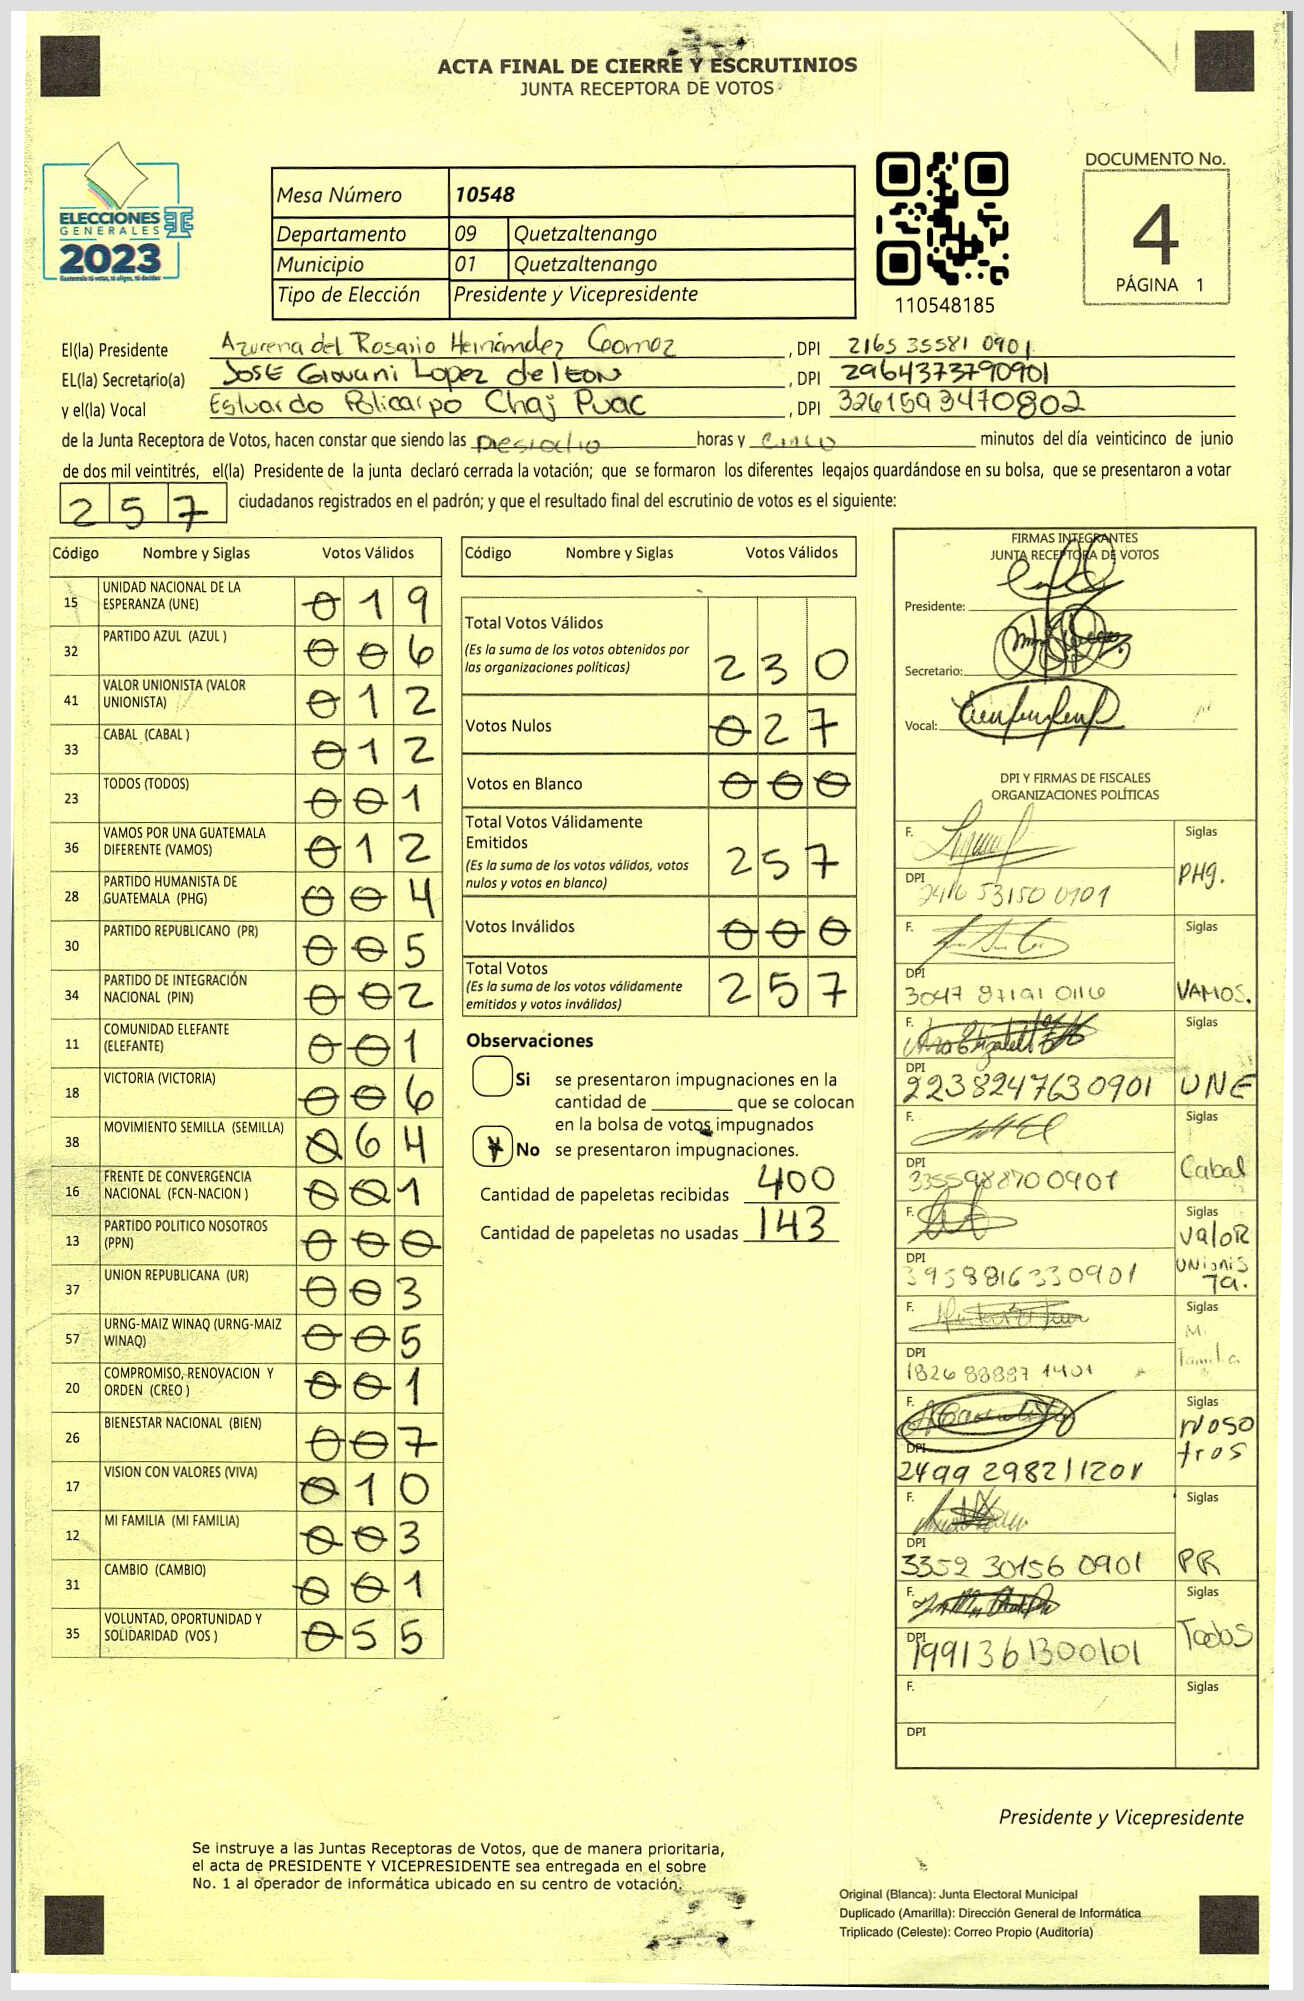 ACTA FINAL DE CIERRE Y ESCRUTINIOS
JUNTA RECEPTORA DE VOTOS
ELECCIONES
GENERALES
2023
Mesa Número 10548
Departamento 09 Quetzaltenango
Municipio 01 Quetzaltenango
Tipo de Elección Presidente y Vicepresidente
110548185
DOCUMENTO No.
4
PÁGINA 1
El(la) Presidente Azurena del Rosario Hernández Gomez , DPI 2165 35581 0901
EL(la) Secretario(a) José Giovani Lopez de LEON , DPI 2964373790901
y el(la) Vocal Estuardo Policarpo Chaj Puac , DPI 3261593470802
de la Junta Receptora de Votos, hacen constar que siendo las horas y cinco minutos del día veinticinco de junio
de dos mil veintitrés, el(la) Presidente de la junta declaró cerrada la votación; que se formaron los diferentes legajos guardándose en su bolsa, que se presentaron a votar
257 ciudadanos registrados en el padrón; y que el resultado final del escrutinio de votos es el siguiente:
Código Nombre y Siglas Votos Válidos
15 UNIDAD NACIONAL DE LA ESPERANZA (UNE) 0 1 9
32 PARTIDO AZUL (AZUL ) 0 0 6
41 VALOR UNIONISTA (VALOR UNIONISTA) 0 1 2
33 CABAL (CABAL ) 0 1 2
23 TODOS (TODOS) 0 0 1
36 VAMOS POR UNA GUATEMALA DIFERENTE (VAMOS) 0 1 2
28 PARTIDO HUMANISTA DE GUATEMALA (PHG) 0 0 4
30 PARTIDO REPUBLICANO (PR) 0 0 5
34 PARTIDO DE INTEGRACIÓN NACIONAL (PIN) 0 0 2
11 COMUNIDAD ELEFANTE (ELEFANTE) 0 0 1
18 VICTORIA (VICTORIA) 0 0 6
38 MOVIMIENTO SEMILLA (SEMILLA) 0 6 4
16 FRENTE DE CONVERGENCIA NACIONAL (FCN-NACION ) 0 0 1
13 PARTIDO POLITICO NOSOTROS (PPN) 0 0 0
37 UNION REPUBLICANA (UR) 0 0 3
57 URNG-MAIZ WINAQ (URNG-MAIZ WINAQ) 0 0 5
20 COMPROMISO, RENOVACION Y ORDEN (CREO ) 0 0 1
26 BIENESTAR NACIONAL (BIEN) 0 0 7
17 VISION CON VALORES (VIVA) 0 1 0
12 MI FAMILIA (MI FAMILIA) 0 0 3
31 CAMBIO (CAMBIO) 0 0 1
35 VOLUNTAD, OPORTUNIDAD Y SOLIDARIDAD (VOS ) 0 5 5
Código Nombre y Siglas Votos Válidos
Total Votos Válidos
(Es la suma de los votos obtenidos por
las organizaciones políticas) 2 3 0
Votos Nulos 0 2 7
Votos en Blanco 0 0 0
Total Votos Válidamente
Emitidos
(Es la suma de los votos válidos, votos
nulos y votos en blanco) 2 5 7
Votos Inválidos 0 0 0
Total Votos
(Es la suma de los votos válidamente
emitidos y votos inválidos) 2 5 7
Observaciones
Si se presentaron impugnaciones en la
cantidad de ________ que se colocan
en la bolsa de votos impugnados
No se presentaron impugnaciones.
Cantidad de papeletas recibidas 400
Cantidad de papeletas no usadas 143
FIRMAS INTEGRANTES
JUNTA RECEPTORA DE VOTOS
Presidente:
Secretario:
Vocal:
DPI Y FIRMAS DE FISCALES
ORGANIZACIONES POLÍTICAS
F. Siglas
DPI 2416 53150 0901 PHG.
F. Siglas
DPI 3047 87191 0116 VAMOS.
F. Siglas
DPI 2238247630901 UNE
F. Siglas
DPI 3355988700901 Cabal
F. Siglas
DPI 3958816330901 Valor Unionista.
F. Siglas
DPI 1826 88887 1401 M.
F. Siglas
DPI 2499 29821 1201 Nosotros
F. Siglas
DPI 3352 30156 0901 PR
F. Siglas
DPI 1991361300101 Todos
F. Siglas
DPI
Presidente y Vicepresidente
Se instruye a las Juntas Receptoras de Votos, que de manera prioritaria,
el acta de PRESIDENTE Y VICEPRESIDENTE sea entregada en el sobre
No. 1 al operador de informática ubicado en su centro de votación.
Original (Blanca): Junta Electoral Municipal
Duplicado (Amarilla): Dirección General de Informática
Triplicado (Celeste): Correo Propio (Auditoría)